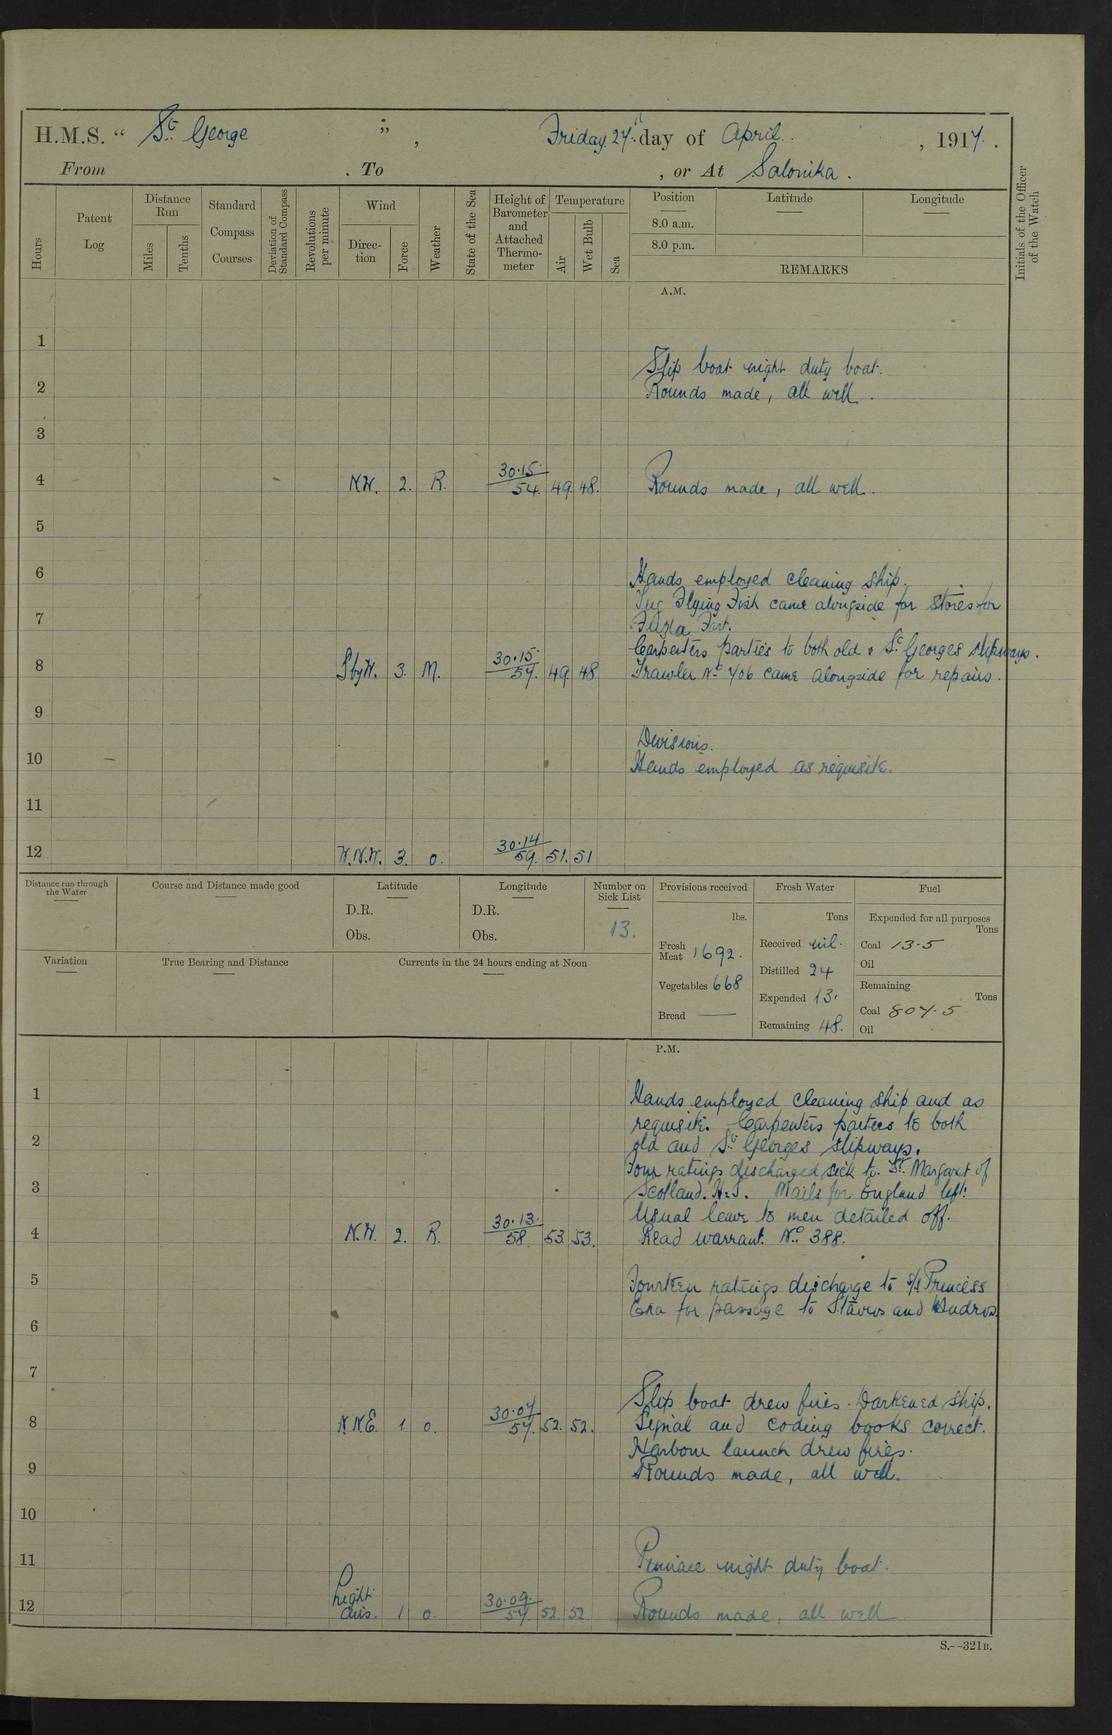 H.M.S. " St George " , Friday 27th day of April. , 1917.
From . To , or At Salonika.
Hours
Patent Log
Distance Run
Miles
Tenths
Standard Compass Courses
Deviation of Standard Compass
Revolutions per minute
Wind
Direc-tion
Force
Weather
State of the Sea
Height of Barometer and Attached Thermo-meter
Temperature
Air
Wet Bulb
Sea
Position
Latitude
Longitude
8.0 a.m.
8.0 p.m.
REMARKS
Initials of the Officer of the Watch
A.M.
1
Slip boat night duty boat.
2 Rounds made, all well.
3
4 N.W. 2. R. 30.15/54. 49 48. Rounds made, all well.
5
6 Hands employed cleaning ship.
Tug Flying Fish came alongside for stores for
7
Carpenters parties to both old & St Georges slipways.
8 S by W. 3. M. 30.15/57. 49 48 Trawler No 706 came alongside for repairs.
9
Divisions.
10 Hands employed as requisite.
11
12 W.N.W. 3. o. 30.14/59. 51. 51
Distance run through the Water
Course and Distance made good
Latitude
D.R.
Obs.
Longitude
D.R.
Obs.
Number on Sick List
13.
Provisions received
lbs.
Fresh Meat 1692.
Vegetables 668
Bread —
Fresh Water
Tons
Received nil.
Distilled 24
Expended 13.
Remaining 48.
Fuel
Expended for all purposes
Tons
Coal 13.5
Oil
Remaining
Tons
Coal 807.5
Oil
Variation
True Bearing and Distance
Currents in the 24 hours ending at Noon
P.M.
1 Hands employed cleaning ship and as
requisite. Carpenters parties to both
2 old and St Georges slipways.
Four ratings discharged sick to St. Margaret of
3 Scotland. H.S. Mails for England left.
Usual leave to men detailed off.
4 N.W. 2. R. 30.13./58. 53. 53. Read warrant No 388.
5 Fourteen ratings discharge to S/S Princess
Ena for passage to Stavros and Mudros.
6
7
Slip boat drew fires. Darkened ship.
8 N.N.E. 1 o. 30.07/57. 52. 52. Signal and coding books correct.
Harbour launch drew fires.
9 Rounds made, all well.
10
11 Pinnace night duty boat.
12 Light airs. 1 o. 30.09./57. 52. 52. Rounds made, all well
S.--321B.